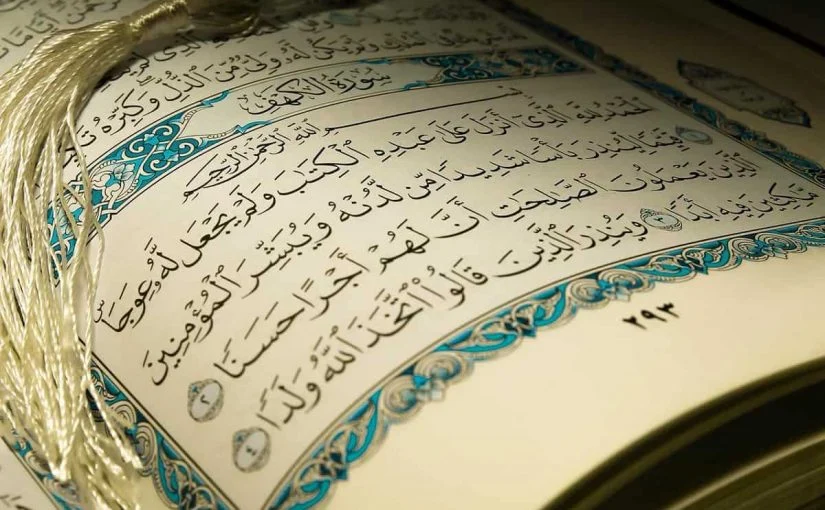 ٱلرَّحْمَٰنَ أَيًّا مَّا
ٱلَّذِى لَمْ
وَلَمْ يَكُن لَّهُۥ وَلِىٌّ مِّنَ ٱلذُّلِّ وَكَبِّرْهُ
سُورَةُ ٱلْكَهْفِ
بِسْمِ ٱللَّهِ ٱلرَّحْمَٰنِ ٱلرَّحِيمِ
ٱلْحَمْدُ لِلَّهِ ٱلَّذِىٓ أَنزَلَ عَلَىٰ عَبْدِهِ ٱلْكِتَٰبَ وَلَمْ يَجْعَل لَّهُۥ عِوَجَاۜ
١ قَيِّمًا لِّيُنذِرَ بَأْسًا شَدِيدًا مِّن لَّدُنْهُ وَيُبَشِّرَ ٱلْمُؤْمِنِينَ
ٱلَّذِينَ يَعْمَلُونَ ٱلصَّٰلِحَٰتِ أَنَّ لَهُمْ أَجْرًا حَسَنًا ٢
مَّٰكِثِينَ فِيهِ أَبَدًا ٣ وَيُنذِرَ ٱلَّذِينَ قَالُوا۟ ٱتَّخَذَ ٱللَّهُ وَلَدًا ٤
٢٩٣